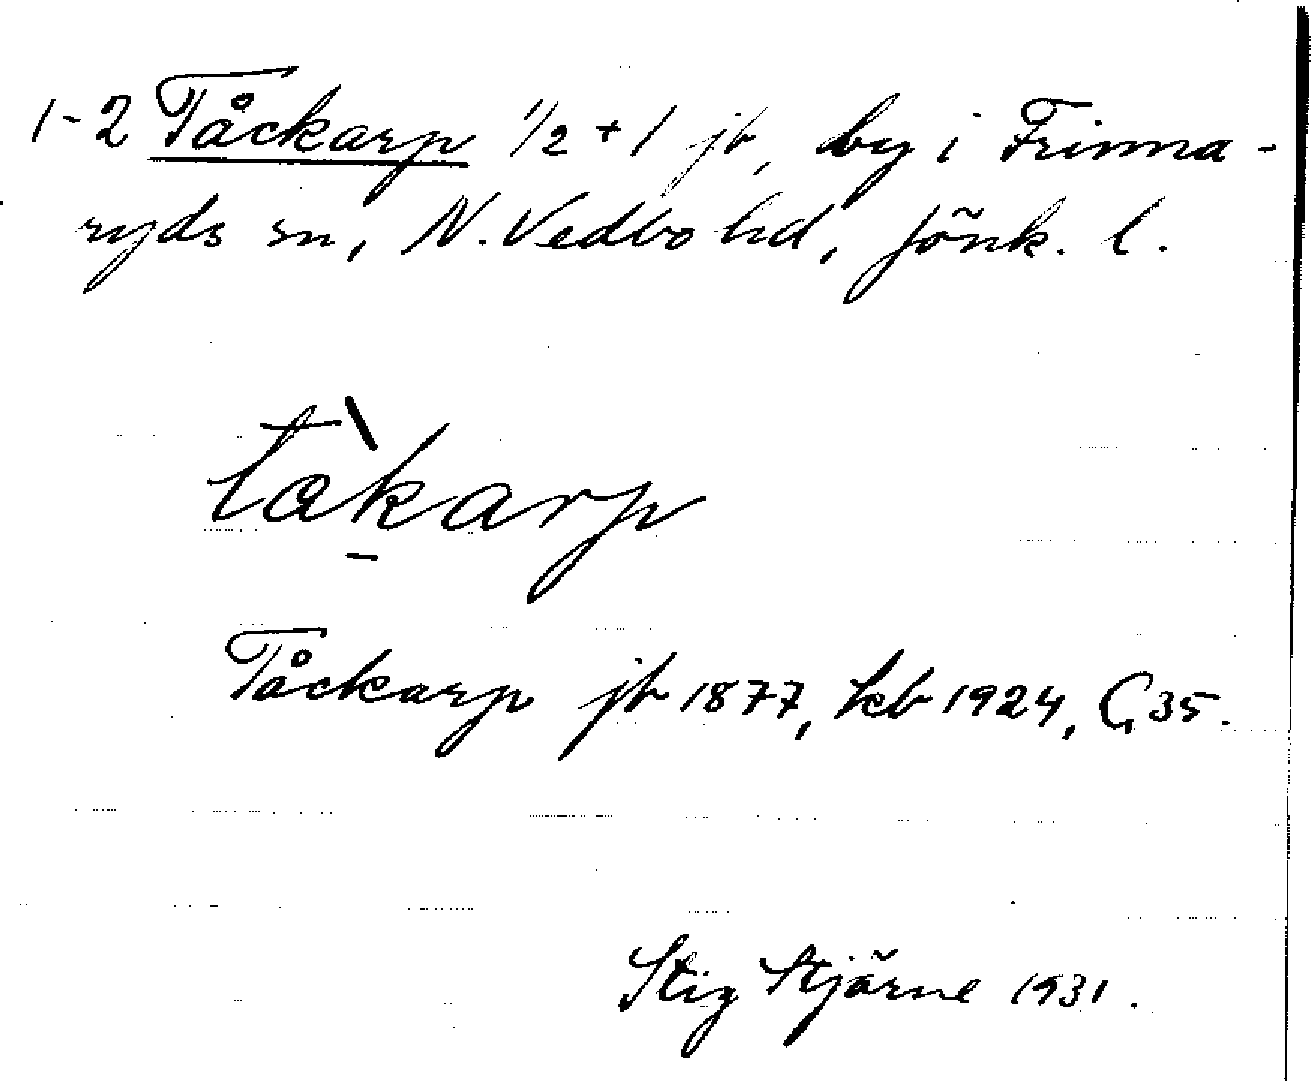 1-2 Tåckarp 1/2 + 1 jb, by i Frinna-
ryds sn, N. Vedbo hd, Jönk. l.
tàk̠arp
Tåckarp jb 1877, kb 1924, G, 35.
Stig Stjärne 1931.